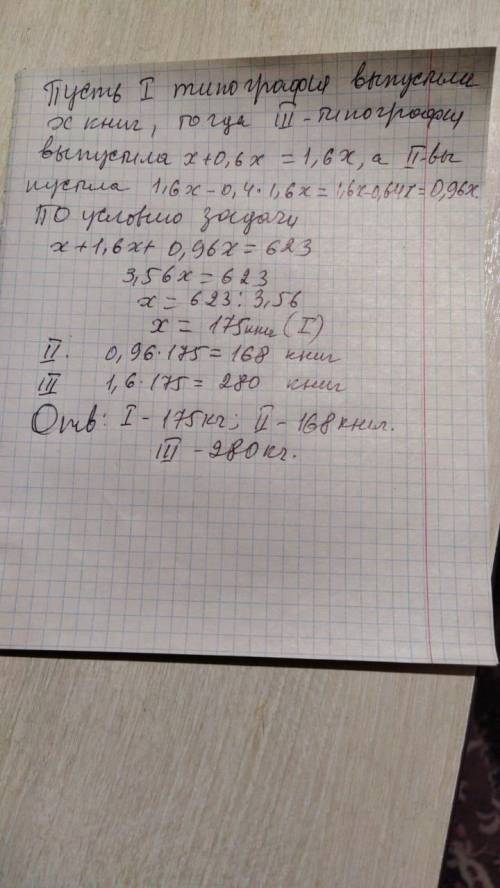 Пусть I типография выпустила
x книг, тогда III-типография
выпустила x+0,6x = 1,6x, а II-вы
пустила 1,6x-0,4·1,6x=1,6x-0,64x=0,96x
По условию задачи
x+1,6x+0,96x=623
3,56x=623
x=623:3,56
x= 175книг (I)
II. 0,96·175=168 книг
III 1,6·175= 280 книг
Отв: I-175кг; II-168книг.
III -280кг.